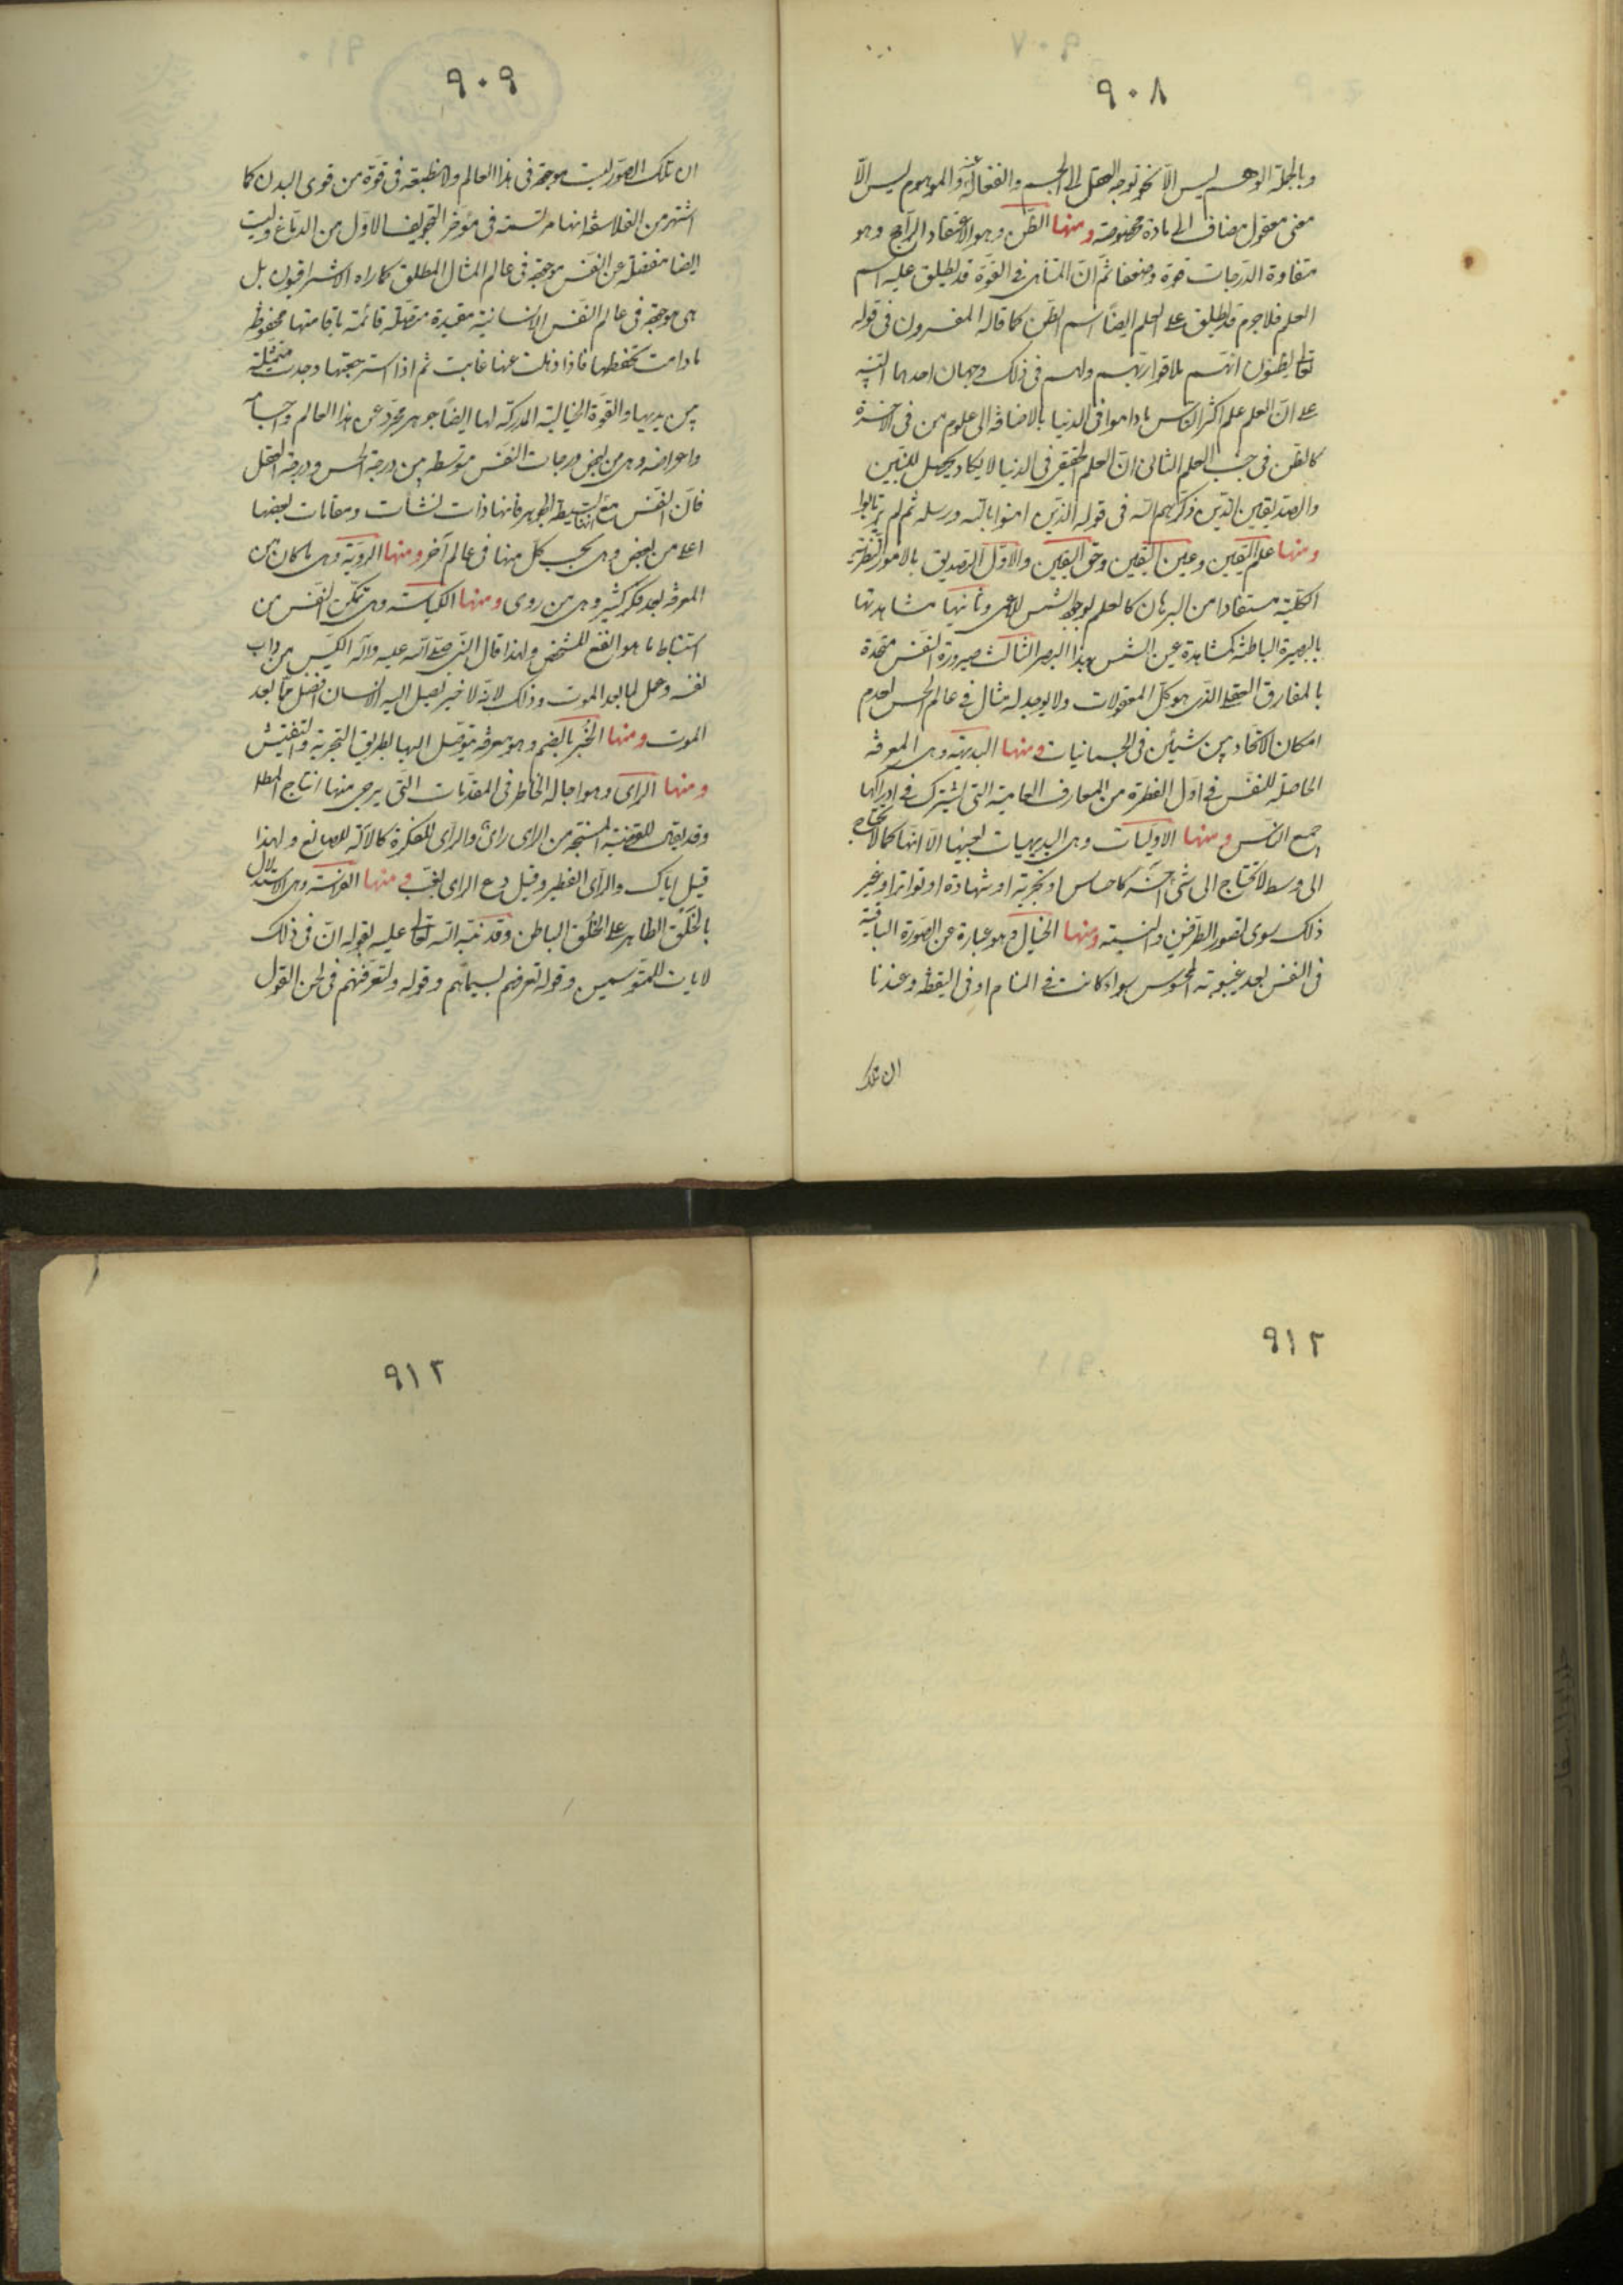 ٩٠٨
وبالجملة الوهم ليس الا نحو توجه العقل الى الجسم وانفعاله عنه والموهوم ليس الّا
معنى معقول مضاف الى مادة مخصوصة ومنها الظّن وهو الاعتقاد الراجح وهو
متفاوة الدّرجات قوة وضعفا ثمّ انّ المتناهى فى القوّة قد يطلق عليه اسم
العلم فلا جرم قد يطلق على العلم ايضًا اسم الظن كما قاله المفسرون فى قوله
تعالى يظنون انهم ملاقوا ربّهم ولهم فى ذلك وجهان احدهما التنبيه
على انّ علم اكثر الناس ما داموا فى الدنيا بالاضافة الى علوم من فى الآخرة
كالظن فى جنب العلم الثانى انّ العلم الحقيقى فى الدنيا لا يكاد يحصل للنبيين
والصديقين الذين ذكرهم الله فى قوله الذين امنوا بالله ورسله ثم لم يرتابوا
ومنها علم اليقين وعين اليقين وحق اليقين والاوّل التصديق بالامور النظرية
الكلّية مستفادا من البرهان كالعلم بوجود الشمس للاعمى وثانيها مشاهدتها
بالبصيرة الباطنة كمشاهدة عين الشمس بهذا البصر الثالث صيرورة النفس متحدة
بالمفارق العقلى الذى هو كلّ المعقولات ولا يوجد له مثال فى عالم الحس لعدم
امكان الاتحاد بين شيئين فى الجسمانيات ومنها البديهة وهى المعرفة
الحاصلة للنفس فى اول الفطرة من المعارف العامية التى يشترك فى ادراكها
جميع الناس ومنها الاوليات وهى البديهيات بعينها الّا انها كما لا تحتاج
الى وسط لا تحتاج الى شئ آخر كاحساس او تجربة او شهادة او تواتر او غير
ذلك سوى تصور الطرفين والنسبة ومنها الخيال وهو عبارة عن الصورة الباقية
فى النفس بعد غيبوبة المحسوس سواء كانت فى المنام او فى اليقظة وعندنا
ان تلك
٩٠٩
ان تلك الصّور ليست موجودة فى هذا العالم ولا منطبعة فى قوة من قوى البدن كما
اشتهر من الفلاسفة انها مرتسمة فى مؤخر التجويف الاوّل من الدماغ وليست
ايضا منفصلة عن النفس موجودة فى عالم المثال المطلق كما راه الاشراقيون بل
هى موجودة فى عالم النفس الانسانية مقيدة متصلة قائمة باقامتها محفوظة
ما دامت تحفظها فاذا ذهلت عنها غابت ثم اذا استرجعتها وجدت متمثلة
بين يديها والقوة الخيالية المدركة لها ايضا جوهر مجرد عن هذا العالم واجسامه
واعراضه وهى من بعض درجات النفس متوسطه بين درجة الحس ودرجة العقل
فانّ النفس مع انها بسيطة الجوهر فانها ذات نشأت ومقامات بعضها
اعلى من بعض وهى بحسب كل منها فى عالم آخر ومنها الرويّة وهى ما كان من
المعرفة بعد فكر كثير وهى من روى ومنها الكياسة وهى تمكن النفس من
استنباط ما هو انفع للشخص ولهذا قال النبى صلى الله عليه وآله الكيّس من داب
نفسه وعمل لما بعد الموت وذلك لانّه لا خير يصل اليه الانسان افضل ممّا بعد
الموت ومنها الخبر بالضم وهو معرفة يتوصل اليها بطريق التجربة والتفتيش
ومنها الراى وهو اجالة الخاطر فى المقدمات التى يرجى منها انتاج المطلوب
وقد يقال للقضية المستنتجة من الراى راى والراى للفكرة كالآلة للصانع ولهذا
قيل اياك والرأى الفطير وقيل دع الراى يغب ومنها الفراسة وهى الاستدلال
بالخلق الظاهر على الخلق الباطن وقد نبّه الله تعالى عليه بقوله انّ فى ذلك
لايات للمتوسمين وقوله تعرفهم بسيماهم وقوله ولتعرفنهم فى لحن القول
٩١٢
٩١٣